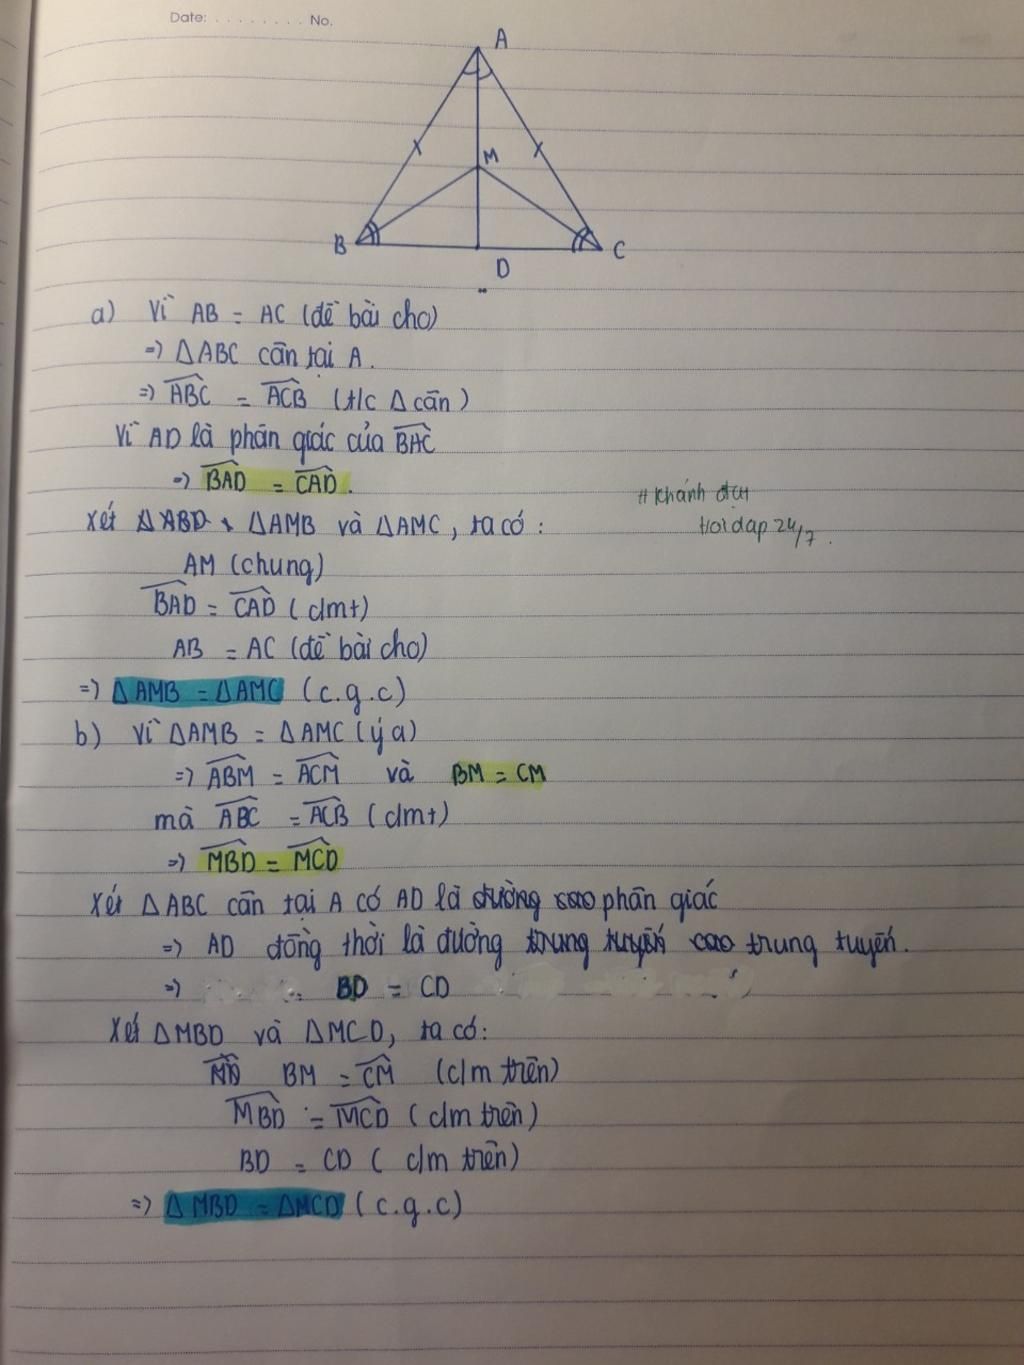 Date: . . . . . . . . No.
A
M
B
C
D
a) Vì AB = AC (đề bài cho)
=> ΔABC cân tại A.
=> ABC = ACB (t/c Δ cân)
Vì AD là phân giác của BAC
=> BAD = CAD.
# Khánh
Xét ΔABD ΔAMB và ΔAMC, ta có:
hoidap 24/7.
AM (chung)
BAD = CAD (cmt)
AB = AC (đề bài cho)
=> ΔAMB = ΔAMC (c.g.c)
b) Vì ΔAMB = ΔAMC (ý a)
=> ABM = ACM và BM = CM
mà ABC = ACB (cmt)
=> MBD = MCD
Xét ΔABC cân tại A có AD là đường cao phân giác
=> AD đồng thời là đường trung tuyến cao trung tuyến.
=> BD = CD
Xét ΔMBD và ΔMCD, ta có:
BM = CM (c/m trên)
MBD = MCD (c/m trên)
BD = CD (c/m trên)
=> ΔMBD = ΔMCD (c.g.c)